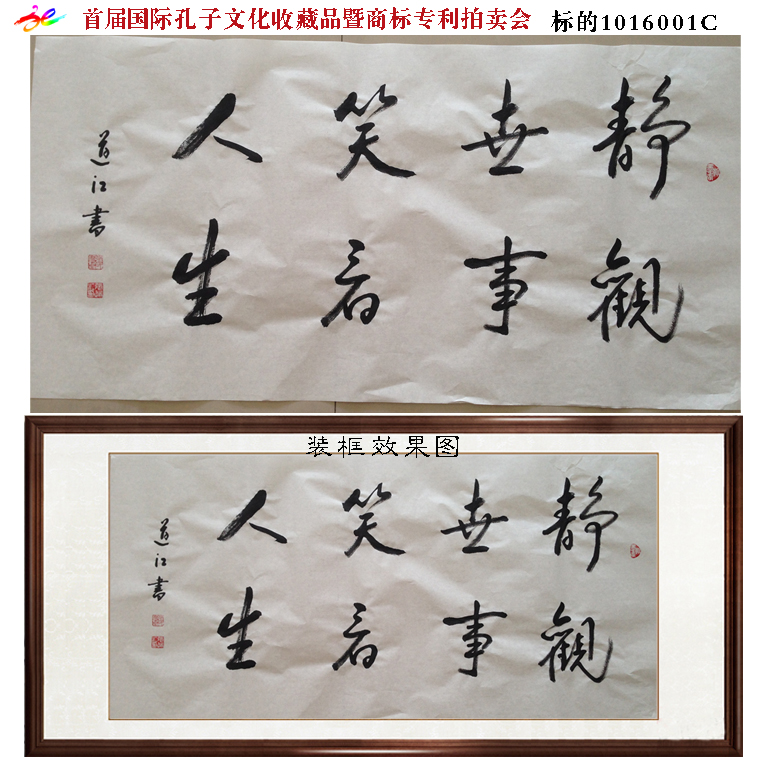 首届国际孔子文化收藏品暨商标专利拍卖会 标的1016001C
静觀
世事
笑看
人生
道江書
装框效果图
静觀
世事
笑看
人生
道江書